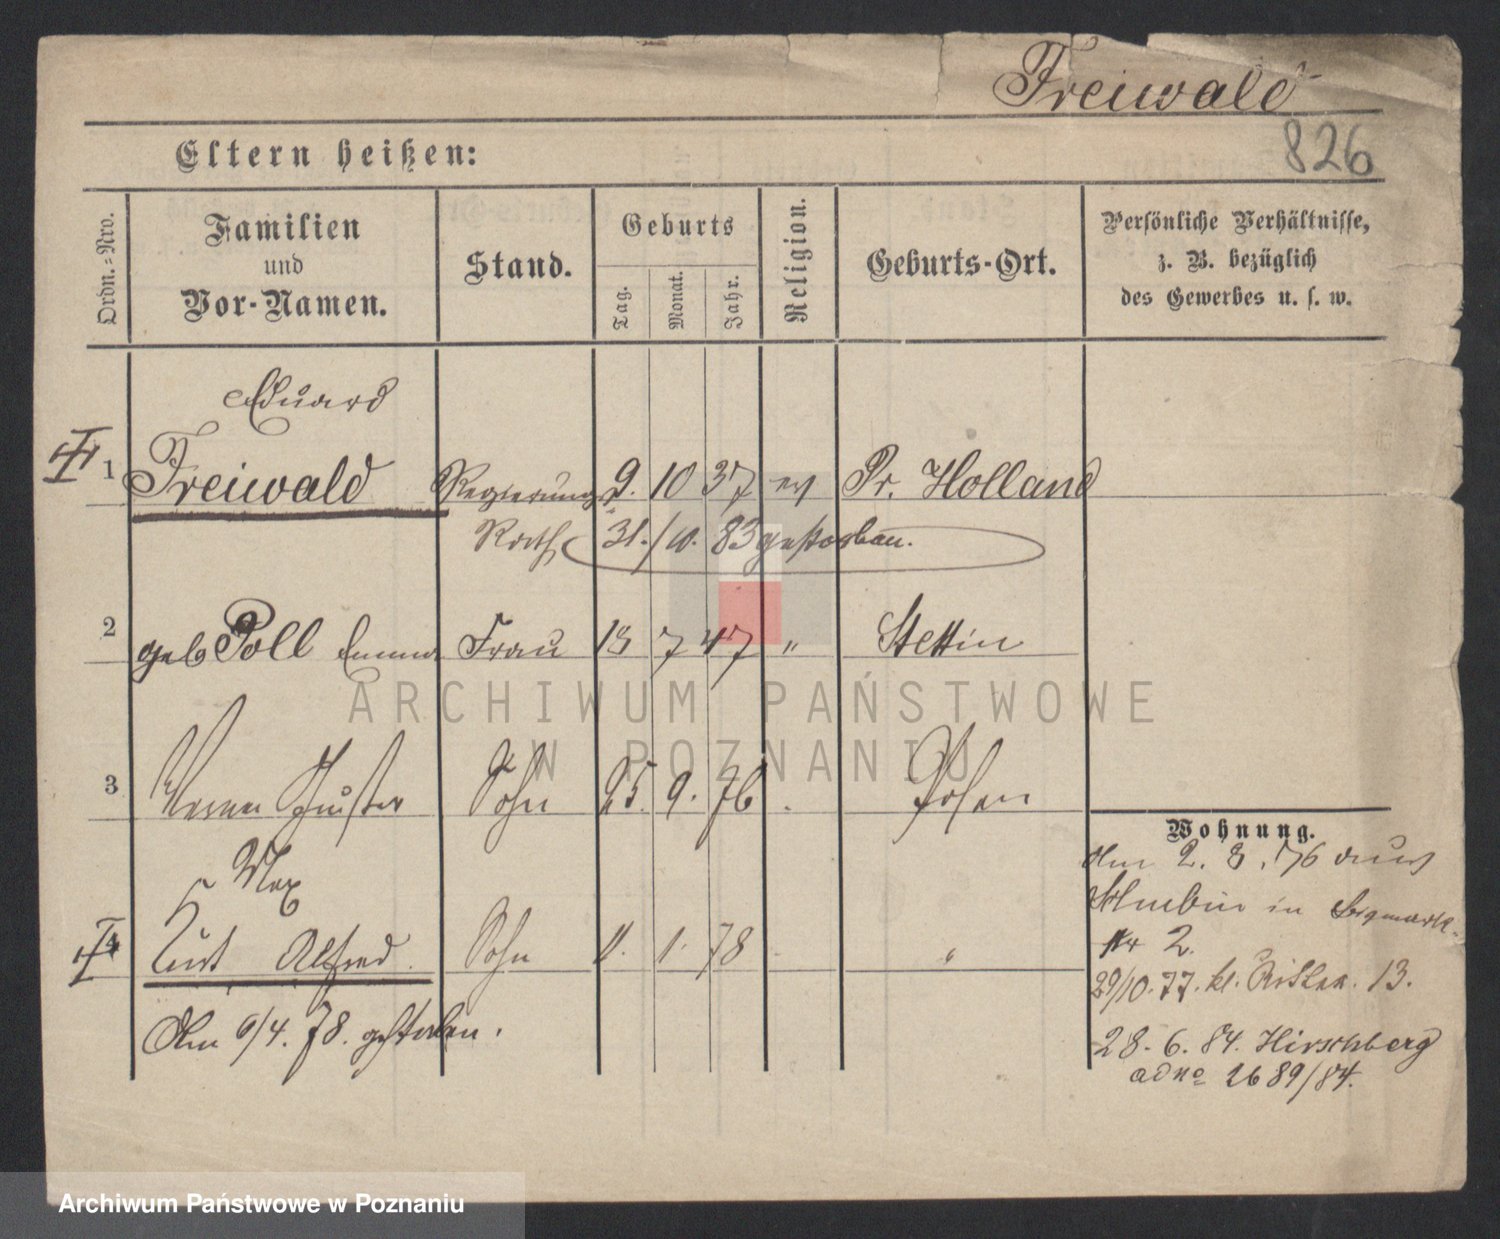 Freiwald
826
Eltern heißen:
Ordn.=Nro.
Familien
und
Vor-Namen.
Stand.
Geburts
Tag.
Monat.
Jahr.
Religion.
Geburts-Ort.
Persönliche Verhältnisse,
z. B. bezüglich
des Gewerbes u. s. w.
Eduard
1 Freiwald Regierungs 9. 10 37 ev Pr. Holland
Rath 31./10. 83 gestorben.
2 geb Poll Emma Frau 18 7 47 " Stettin
3 Gustav Sohn 25. 9. 76 Posen
Max
4 Curt Alfred. Sohn 11. 1. 78 "
Am 6/4. 78. gestorben.
Wohnung.
Am 2. 8. 76 aus
Schubin in
Nr 2.
29/10. 77. kl. Ritter. 13.
28. 6. 84. Hirschberg
ad no 1689/84.
ARCHIWUM PAŃSTWOWE
W POZNANIU
Archiwum Państwowe w Poznaniu